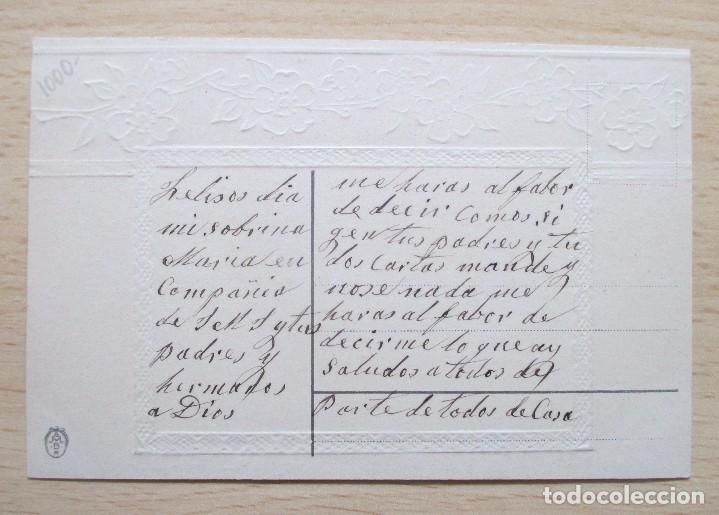 1000-
Felisos dia
mi sobrina
Maria en
Compañia
de
y tus
padres y
hermanos
a Dios
me haras al fabor
de decir Comos si
gen tus padres y tu
dos Cartas mande y
nose nada me
haras al fabor de
decirme lo que ay
Saludos a todos de
Parte de todos de Casa
todocoleccion.net